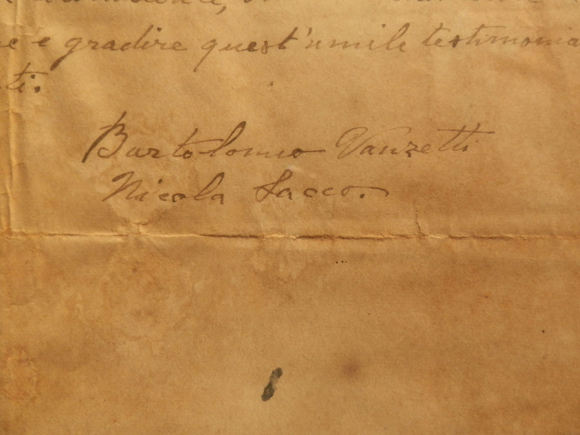 e e gradire quest'umile testimonia
ti.
Bartolomeo Vanzetti
Nicola Sacco.